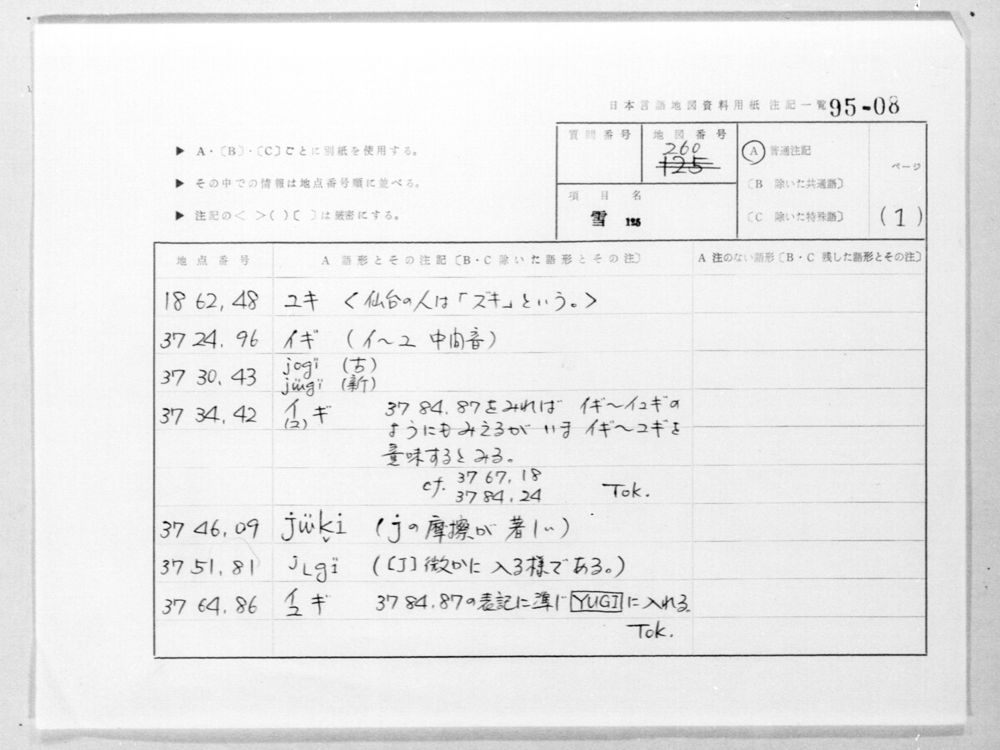 日本言語地図資料用紙 注記一覧 95-08
▶ A・〔B〕・〔C〕ごとに別紙を使用する。
▶ その中での情報は地点番号順に並べる。
▶ 注記の< >( )〔 〕は厳密にする。
質問番号
地図番号
260
125
項目名
雪 125
A 普通注記
〔B 除いた共通語〕
〔C 除いた特殊語〕
ページ
(1)
地点番号 A 語形とその注記〔B・C 除いた語形とその注〕 A 注のない語形〔B・C 残した語形とその注〕
18 62,48 ユキ <仙台の人は「ズキ」という。>
37 24.96 イギ (イ~ユ 中間音)
37 30.43 jogï (古)
jüɡï (新)
37 34,42 イ(ユ)ギ 37 84.87をみれば イギ~イユギの
ようにもみえるが いま イギ~ユギを
意味するとみる。
cf. 37 67,18
37 84,24 Tok.
37 46,09 jüki (jの摩擦が著しい)
37 51,81 jɩgï (〔J〕微かに入る様である。)
37 64,86 イユギ 37 84,87の表記に準じ YUGI に入れる。
Tok.